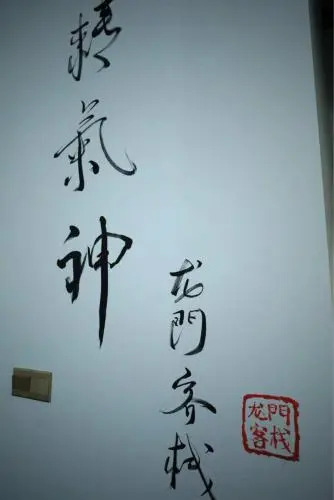 精氣神
龙門客栈
龙門
客栈